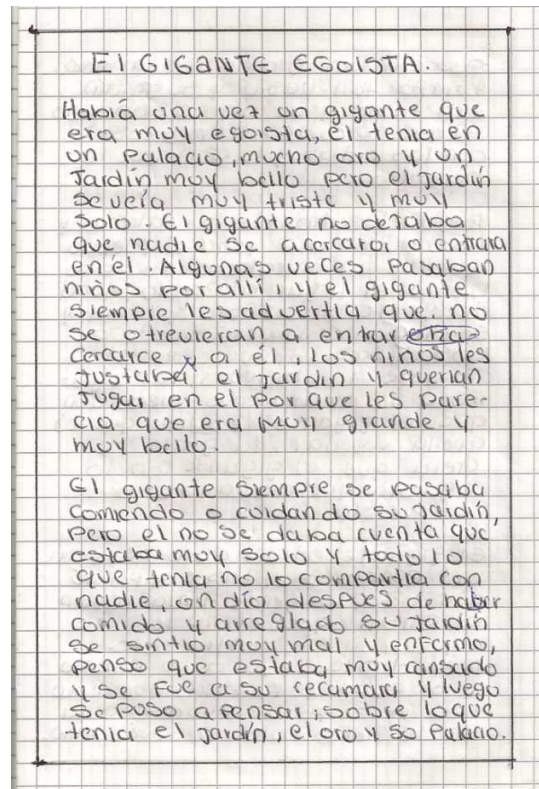 El GIGANTE EGOISTA.
Había una vez un gigante que
era muy egoista, el tenia en
un palacio, mucho oro y un
Jardín muy bello pero el jardín
se veia muy triste y muy
solo. El gigante no dejaba
que nadie se acercara, o entrara
en él. Algunas veces pasaban
niños por allí, y el gigante
siempre les advertia que no
se atrevieran a entrar o ha
cercarce a él, los niños les
justaba el jardin y querian
jugar en el por que les pare-
cia que era muy grande y
muy bello.
El gigante siempre se pasaba
comiendo o cuidando su jardín,
pero el no se daba cuenta que
estaba muy solo y todo lo
que tenia no lo compartia con
nadie, un día despues de haber
comido y arreglado su jardín
se sintio muy mal y enfermo,
penso que estaba muy cansado
y se fue a su recamara y luego
se puso a pensar, sobre lo que
tenia el jardín, el oro y su palacio.